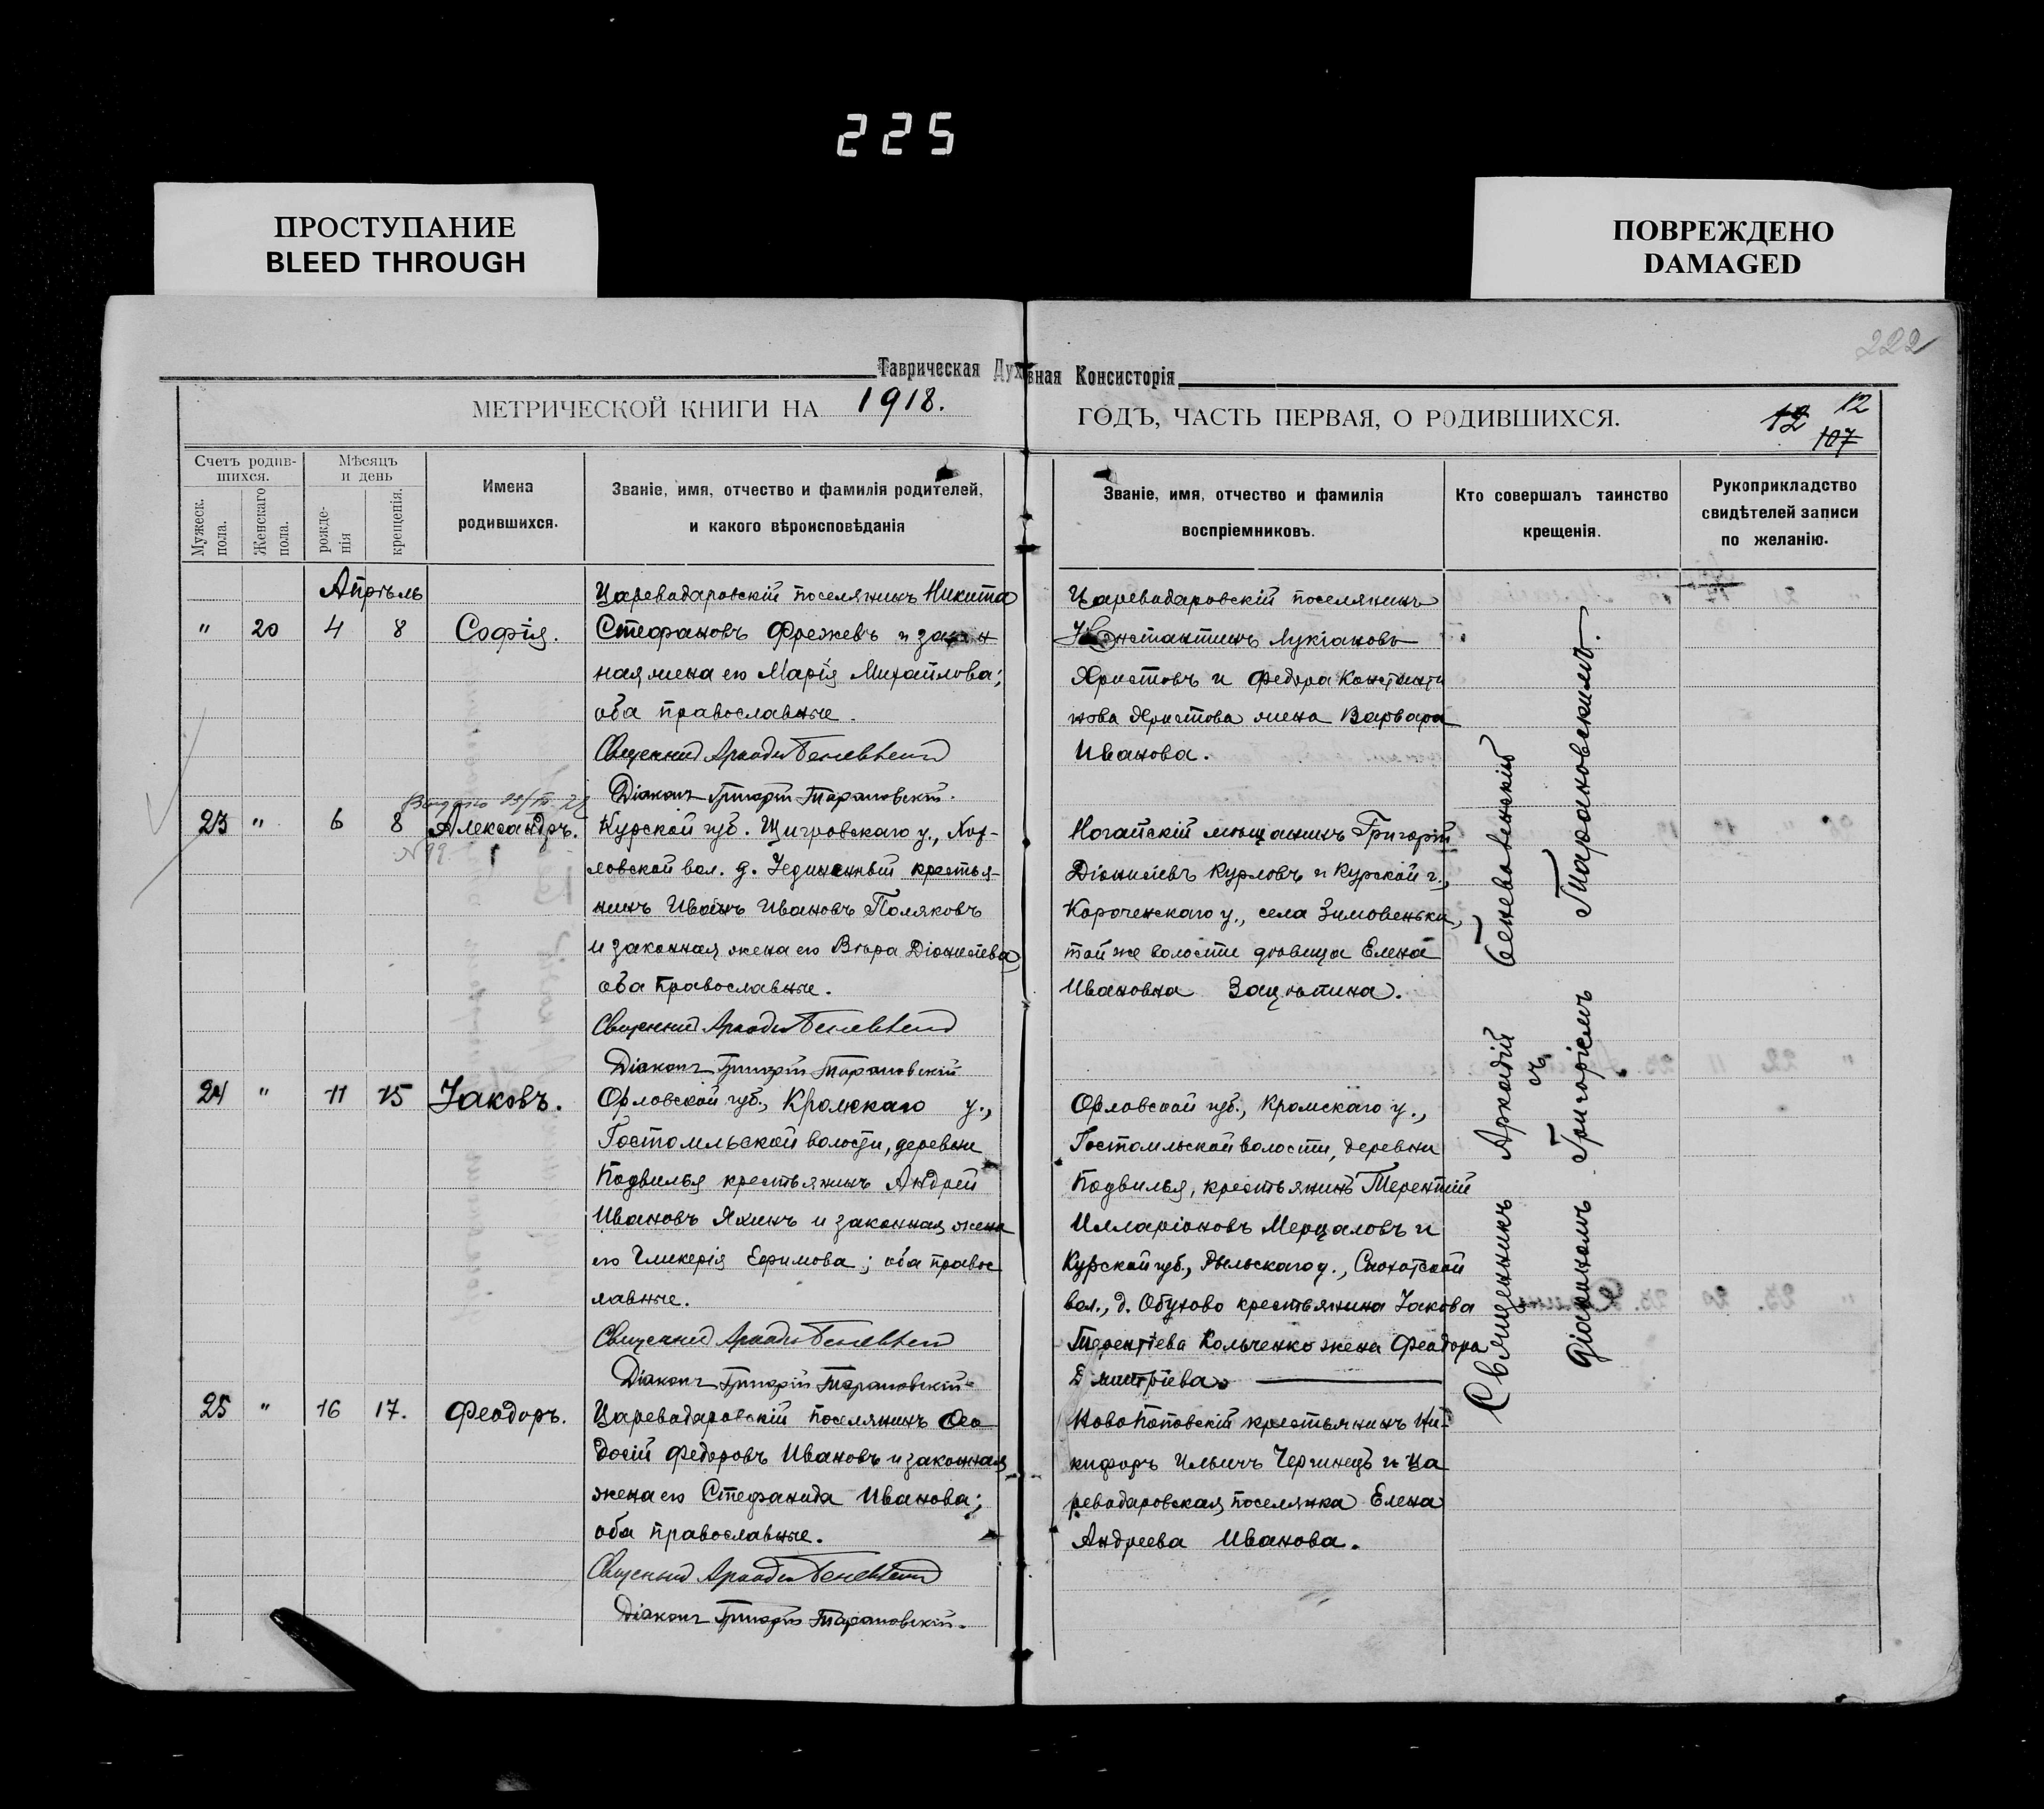 225
ПРОСТУПАНИЕ
BLEED THROUGH
ПОВРЕЖДЕНО
DAMAGED
222
Таврическая Духовная Консисторія
МЕТРИЧЕСКОЙ КНИГИ НА 1918.
ГОДЪ, ЧАСТЬ ПЕРВАЯ, О РОДИВШИХСЯ.
12
12
107
Счетъ родив-
шихся.
Мужеск. пола.
Женскаго пола.
Мѣсяцъ
и день
рожде-
нія
крещенія.
Имена
родившихся.
Званіе, имя, отчество и фамилія родителей,
и какого вѣроисповѣданія
Званіе, имя, отчество и фамилія
воспріемниковъ.
Кто совершалъ таинство
крещенія.
Рукоприкладство
свидѣтелей записи
по желанію.
Апрѣль
" 20 4 8 Софія.
Цареводаровскій поселянинъ Никита
Стефановъ Фрежевъ и закон
ная жена его Марія Михайлова;
оба православные.
Священникъ Аркадій Беневенскій
Діаконъ Григорій Тарановскій.
Цареводаровскій поселянинъ
Константинъ Лукіановъ
Христовъ и Федора Константи
нова Христова жена Варвара
Иванова.
Выдано
23 " 6 8 Александръ.
N 99
Курской губ. Щигровскаго у., Хох-
ловской вол. д. Уединенный крестья-
нинъ Иванъ Ивановъ Поляковъ
и законная жена его Вѣра Діонисіева
оба Православные.
Священникъ Аркадій Беневенскій
Діаконъ Григорій Тарановскій
Ногайскій мѣщанинъ Григорій
Діонисіевъ Курловъ и Курской г.,
Короченскаго у., села Зимовеньки,
той же волости дѣвица Елена
Ивановна Зацѣпина.
24 " 11 15 Іаковъ.
Орловской губ., Кромскаго у.,
Гостомльской волости, деревни
Подвилья крестьянинъ Андрей
Ивановъ Яхинъ и законная жена
его Гликерія Ефимова; оба правос
лавные.
Священникъ Аркадій Беневенскій
Діаконъ Григорій Тарановскій
Орловской губ., Кромскаго у.,
Гостомльской волости, деревни
Подвилья, крестьянинъ Терентій
Илларіоновъ Мерцаловъ и
Курской губ., Рыльскаго у.,
вол., д. Обухово крестьянина Іакова
Терентіева Кольченко жена Феодора
Димитріева.
25 " 16 17. Феодоръ.
Цареводаровскій поселянинъ Ѳео
досій Федоровъ Ивановъ и законная
жена его Стефанида Иванова;
оба православные.
Священникъ Аркадій Беневенскій
Діаконъ Григорій Тарановскій.
Новопоповскій крестьянинъ Ни-
кифоръ Ильичъ Чергинецъ и Ца
реводаровская поселянка Елена
Андреева Иванова.
Священникъ Аркадій Беневовенскій
съ
діакономъ Григоріемъ Тарановскимъ.